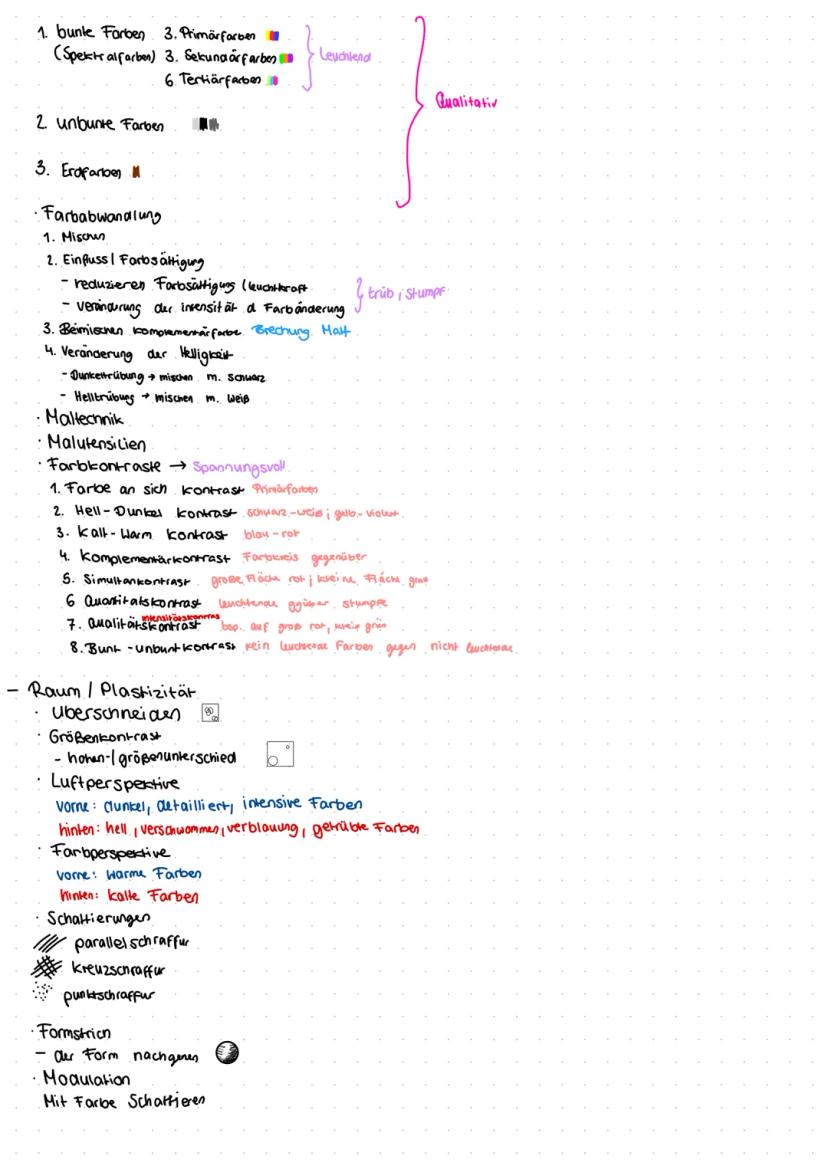 1. bunte Farben 3. Primärfarben
(Spektralfarben) 3. Sekundärfarben
6. Tertiärfarben
Leuchtend
Qualitativ
2. unbunte Farben
3. Erdfarben
· Farbabwandlung
1. Mischen
2. Einfluss / Farbsättigung
- reduzieren Farbsättigung / leuchtkraft
- veränderung der intensität d Farbänderung
trüb, stumpf
3. Beimischen komplementärfarbe. Brechung Matt
4. Veränderung der Helligkeit
- Dunkeltrübung → mischen m. Schwarz
- Helltrübung → mischen m. Weiß
· Maltechnik
· Malutensilien
· Farbkontraste → Spannungsvoll
1. Farbe an sich kontrast Primärfarben
2. Hell-Dunkel kontrast schwarz-weiß; gelb-violett
3. Kalt-Warm kontrast blau-rot
4. Komplementärkontrast Farbkreis gegenüber
5. Simultankontrast große Fläche rot; kleine Fläche grau
6 Quantitätskontrast leuchtende ggüber stumpfe
intensitätskontrast
7. Qualitätskontrast bsp. auf groß rot, klein grün
8. Bunt-unbuntkontrast rein leuchtende Farben gegen nicht leuchtende
- Raum / Plastizität
· Überschneiden
· Größenkontrast
- höhen-/größenunterschied
· Luftperspektive
vorne: dunkel, detailliert, intensive Farben
hinten: hell, verschwommen, verblauung, getrübte Farben
· Farbperspektive
vorne: warme Farben
hinten: kalte Farben
· Schattierungen
parallelschraffur
kreuzschraffur
punktschraffur
· Formstrich
- der Form nachgehen
· Modulation
Mit Farbe Schattieren